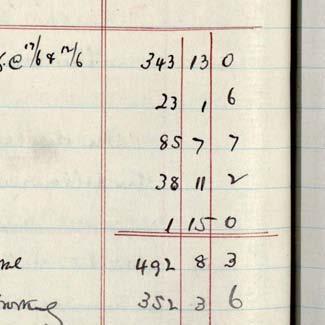 @ 17/6 & 12/6 343 13 0
23 1 6
85 7 7
38 11 2
1 15 0
492 8 3
352 3 6